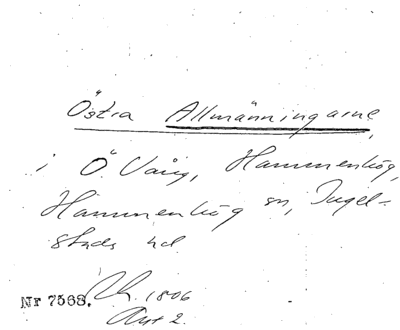 Östra Allmänningarne,
i Ö Vång, Hammenhög,
Hammenhög sn, Ingel-
stads hd.
Nr 7568. 1806
Akt 2.